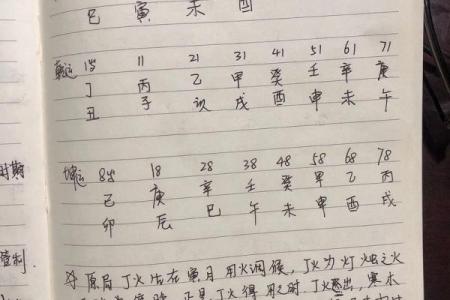 巳 寅 未 酉
乾运 1岁 11 21 31 41 51 61 71
丁 丙 乙 甲 癸 壬 辛 庚
丑 子 亥 戌 酉 申 未 午
时期
坤运 8岁 18 28 38 48 58 68 78
己 庚 辛 壬 癸 甲 乙 丙
卯 辰 巳 午 未 申 酉 戌
原局丁火生在寅月用火调候，丁火为灯烛之火
丁火得
丁火透出，寒木